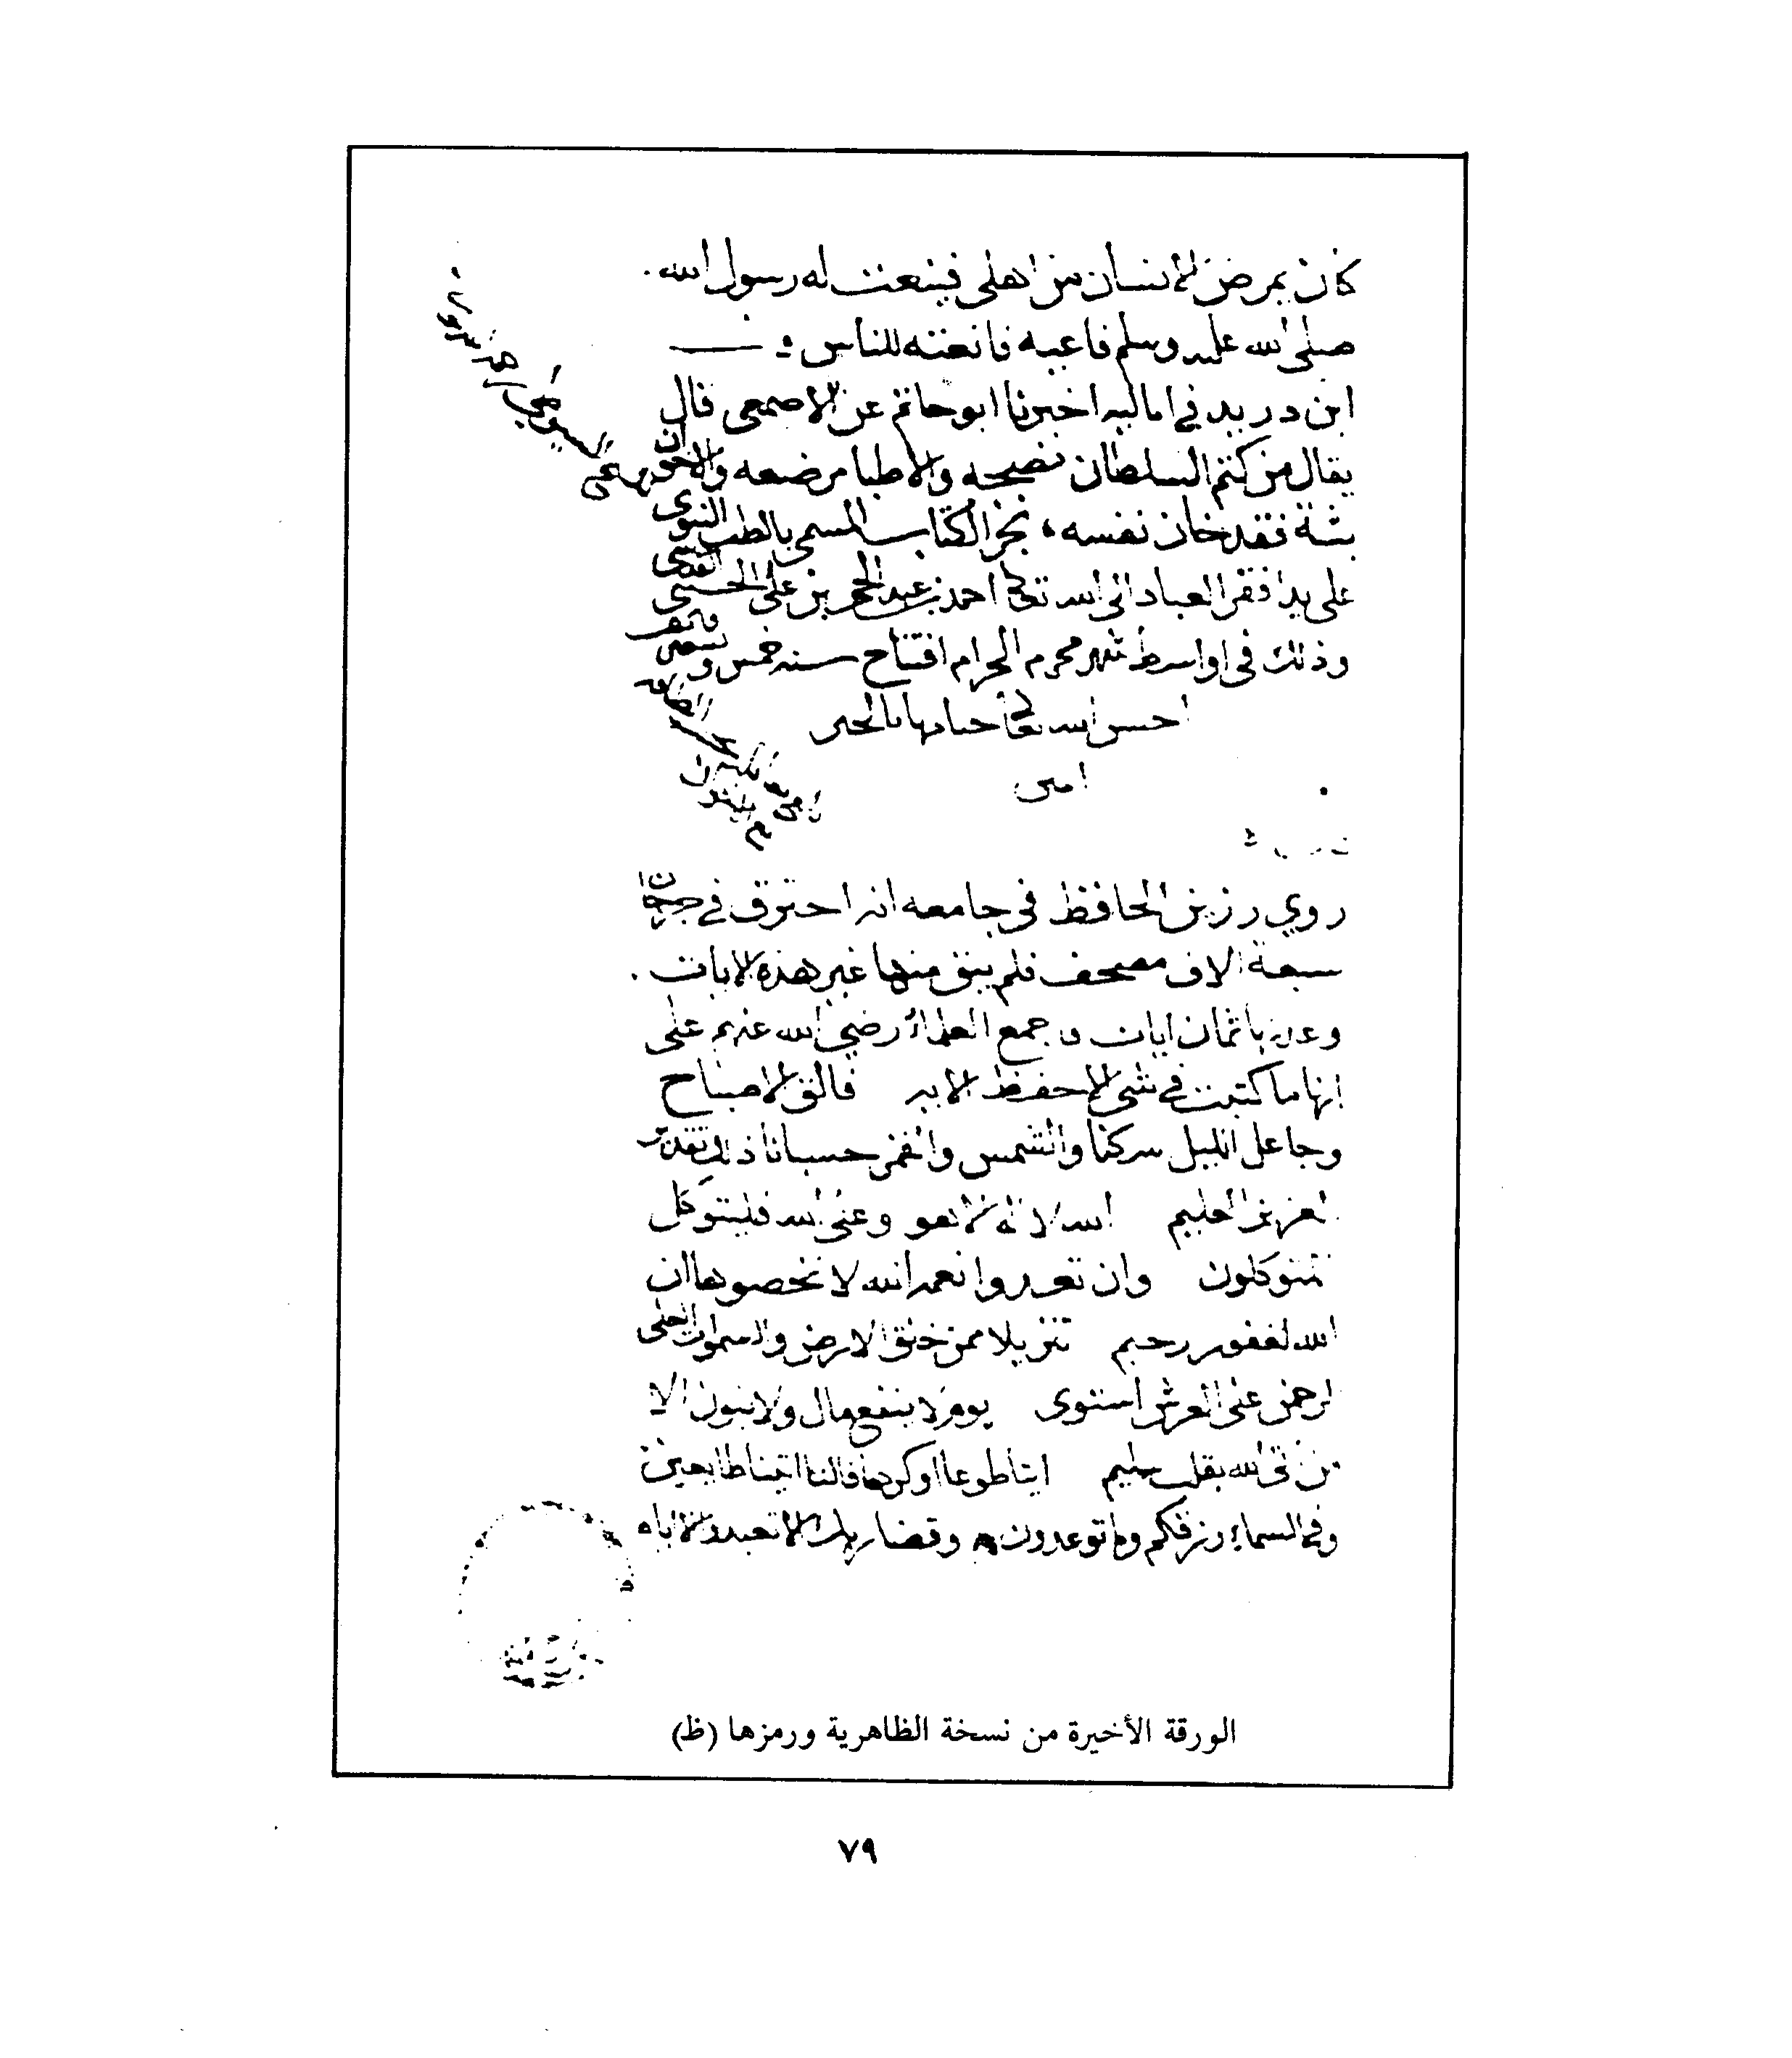 كان يمرض الانسان من اهلى فينعت له رسول الله
صلى الله عليه وسلم فاعيه فانعته للناس
ابن دريد في اماليه اخبرنا ابو حاتم عن الاصمعى قال
يقال من كتم السلطان نصيحه والاطبا مرضه والاخوان
بثه فقد خان نفسه، نجز الكتاب المسمى بالطب النبوى
على يد افقر العباد الى الله تعالى احمد بن عبد الحى بن على الحسنى القدسى
وذلك فى اواسط شهر محرم الحرام افتتاح سنه خمس وتسعين
احسن الله تعالى ختامها بالخير
امين
روي رزين الحافظ فى جامعه انه احترق في
سبعة الاف مصحف فلم يبق منها غير هذه الايات
وعدتها ثمان ايات واجمع العلماء رضي الله عنهم على
انها ما كتبت في شى الا حفظ الايه فالق الاصباح
وجاعل الليل سكنا والشمس والقمر حسبانا ذلك تقدير
العزيز العليم الله لا اله الا هو وعلى الله فليتوكل
المتوكلون وان تعدوا نعمه الله لا تحصوها ان
الله لغفور رحيم تنزيلا ممن خلق الارض والسموات العلى
الرحمن على العرش استوى يوم لا ينفع مال ولا بنون الا
من اتى الله بقلب سليم ايتيا طوعا او كرها قالتا اتينا طايعين
وفي السماء رزقكم وما توعدون وقضا ربك الا تعبدوا الا اياه
الورقة الأخيرة من نسخة الظاهرية ورمزها (ظ)
٧٩